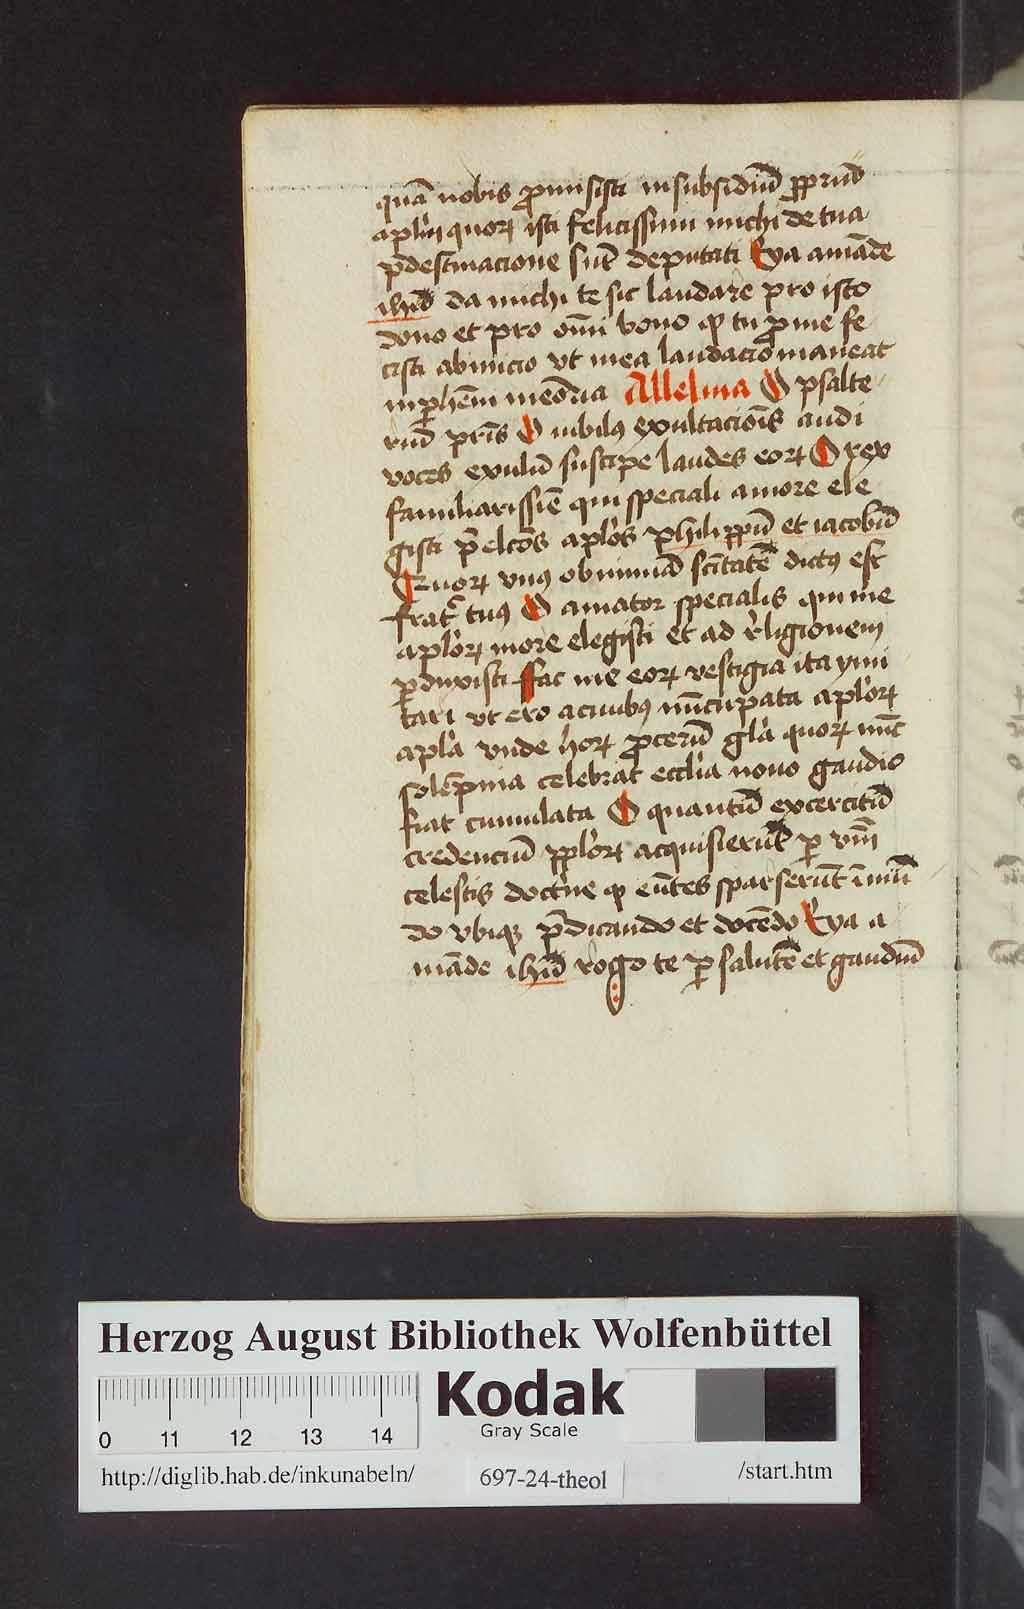 quā nobis promisisti in subsidiū ppriū
aplī quorꝫ isti felicissimi michi de tua
p̄destinacione sūt deputati Eya amāde
ihū da michi te sic laudare pro isto
dono et pro om̄i bono qd tu pro me fe
cisti ab inicio vt mea laudacio maneat
in ꝑhēm meōria Alleluia O psalte
riū pr̄is O iubilꝰ exultacionis audi
voces exulū suscipe laudes eorꝫ O rex
familiarissīe qui speciali amore ele
gisti p̄elcōs aplōs philippū et iacobū
Quorꝫ vnꝰ ob nimiā scītatē dictꝰ est
frater tuꝰ O amator specialis qui me
aplōrꝫ more elegisti et ad religionem
ꝑduxisti ffac me eorꝫ vestigia ita ymi
tari vt ero a ciuibꝰ nūcupata aplōrꝫ
aplā vnde horꝫ procerū glā quorꝫ nūc
solēpnia celebrat ecclīa nouo gaudio
fiat cumulata O quantū excercitū
credenciū pplōrꝫ acquisierūt ꝑ vim̄
celestis doctrine qd eūtes sparserūt ī mū
do vbiqꝫ p̄dicando et docēdo Eya a
māde ihū rogo te ꝑ salutē et gaudiū
Herzog August Bibliothek Wolfenbüttel
Kodak
Gray Scale
0 11 12 13 14
http://diglib.hab.de/inkunabeln/ 697-24-theol /start.htm